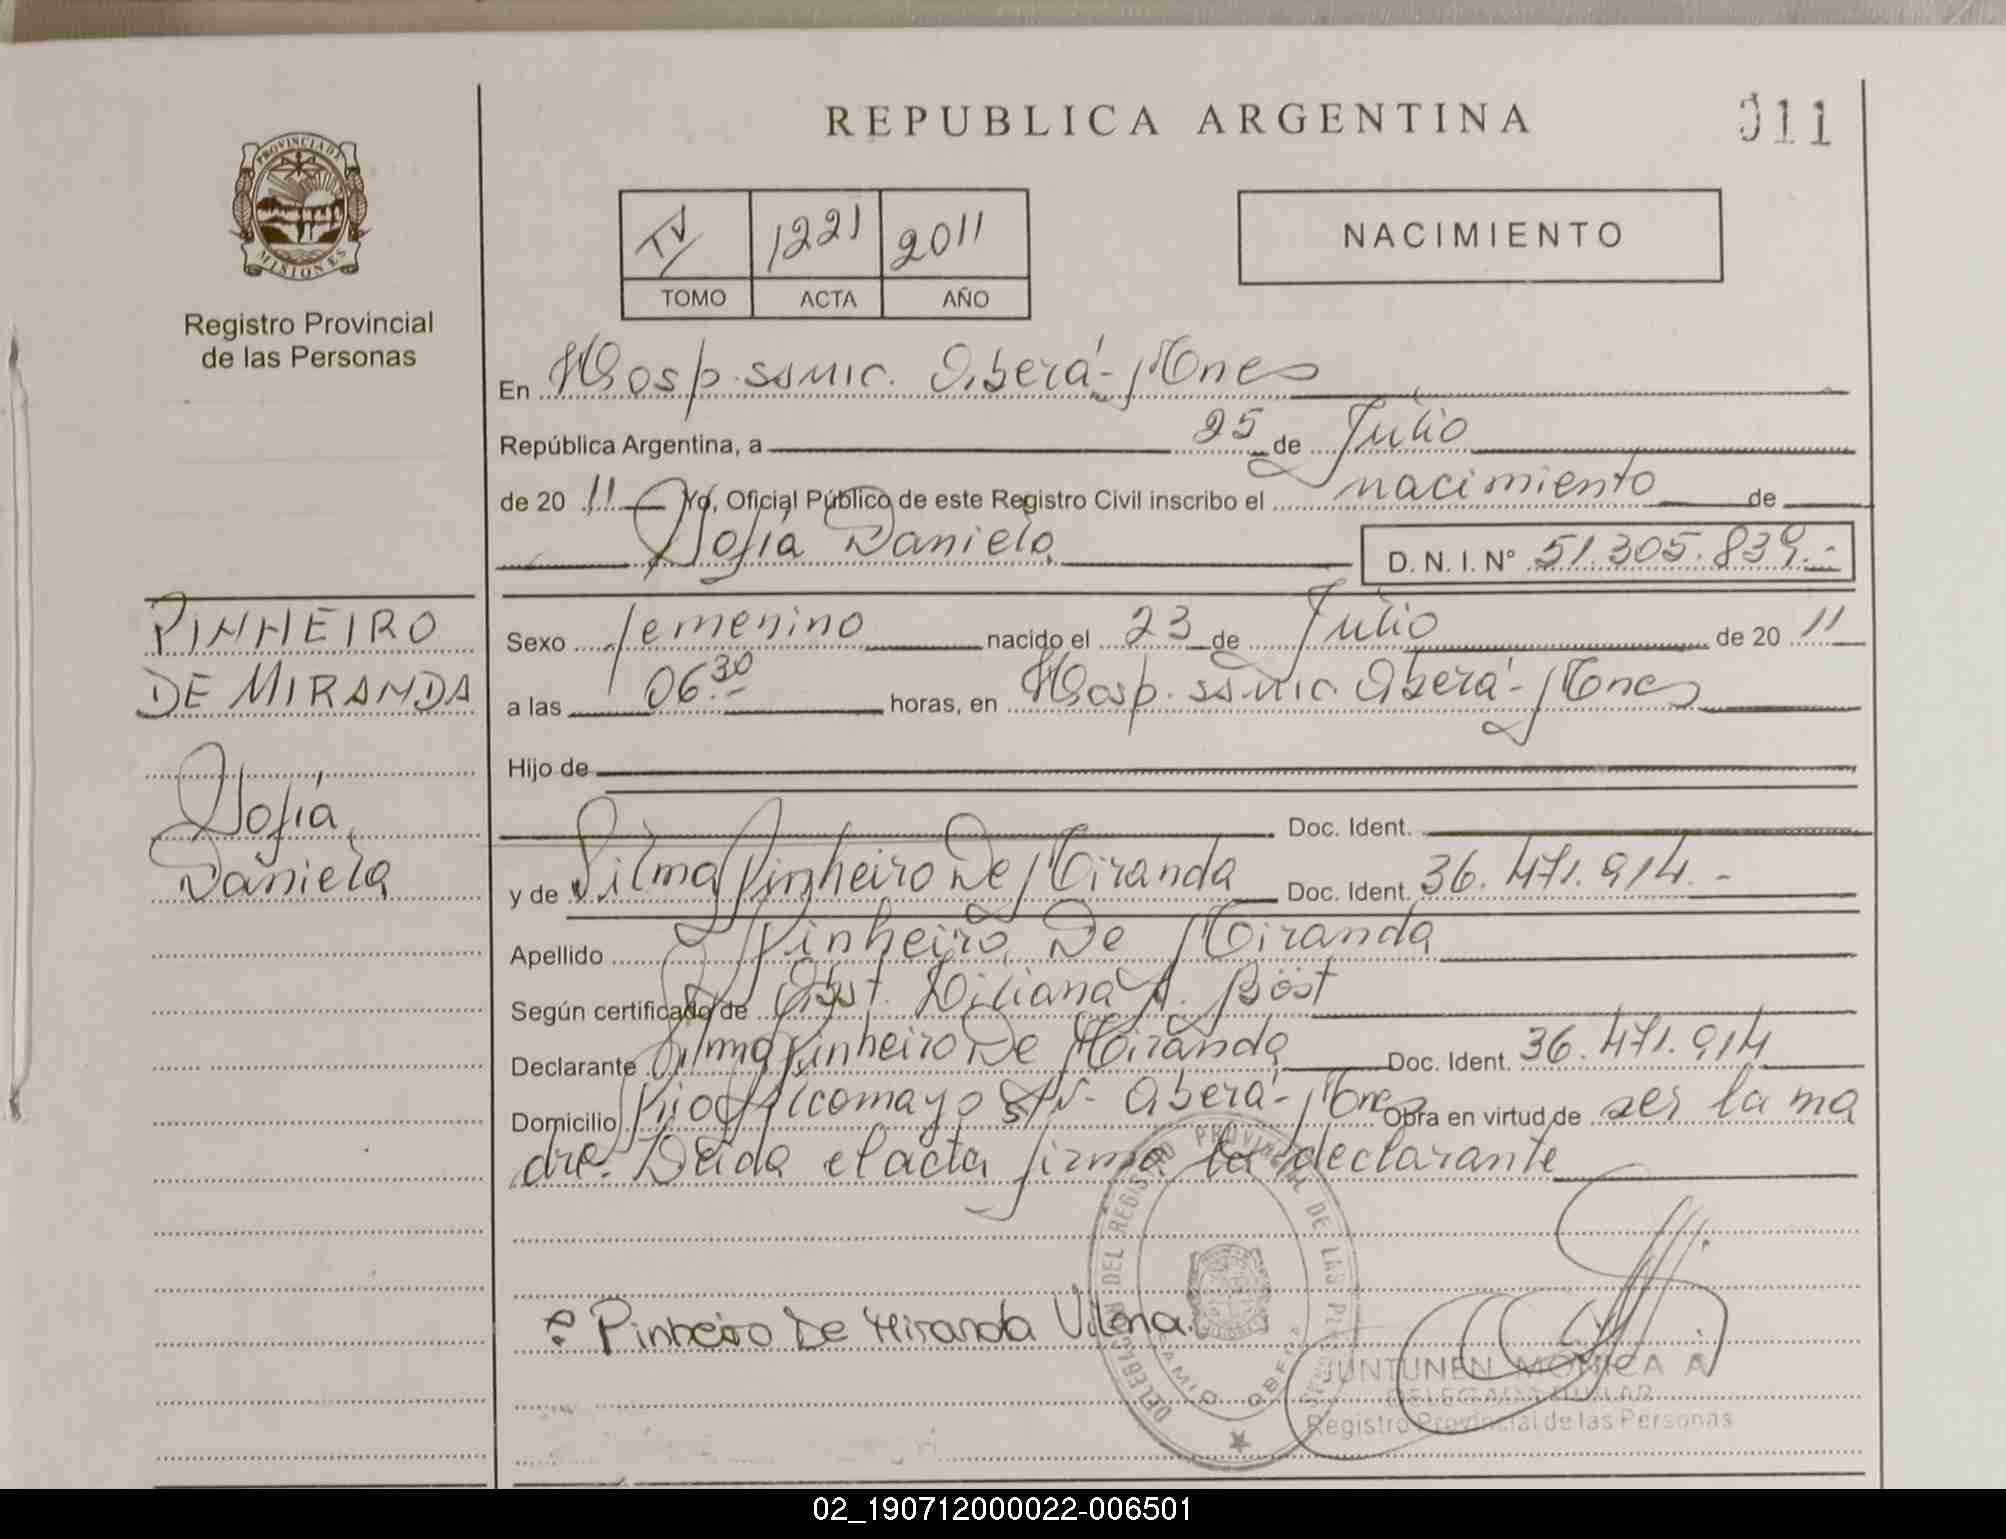 REPUBLICA ARGENTINA
011
PROVINCIA DE
MISIONES
Registro Provincial
de las Personas
1221 2011
TOMO ACTA AÑO
NACIMIENTO
En Hosp. SSMIC. Oberá - Mnes
República Argentina, a 25 de Julio
de 20 11 Yo, Oficial Público de este Registro Civil inscribo el nacimiento de
Sofía Daniela D. N. I. Nº 51.305.839.-
PINHEIRO
DE MIRANDA
Sofía
Daniela
Sexo femenino nacido el 23 de Julio de 20 11
a las 06.30 horas, en Hosp. SSMIC. Oberá - Mnes
Hijo de
Doc. Ident.
y de Vilma Pinheiro De Miranda Doc. Ident. 36.471.914.-
Apellido Pinheiro De Miranda
Según certificado de Obst. Liliana A. Böst
Declarante Vilma Pinheiro De Miranda Doc. Ident. 36.471.914
Domicilio Pilcomayo S/N- Oberá - Mnes Obra en virtud de ser la ma
dre. Leída el acta firma la declarante
Pinheiro De Miranda Vilma.
JUNTUNEN MONICA A
DELEGADA TITULAR
Registro Provincial de las Personas
02_190712000022-006501